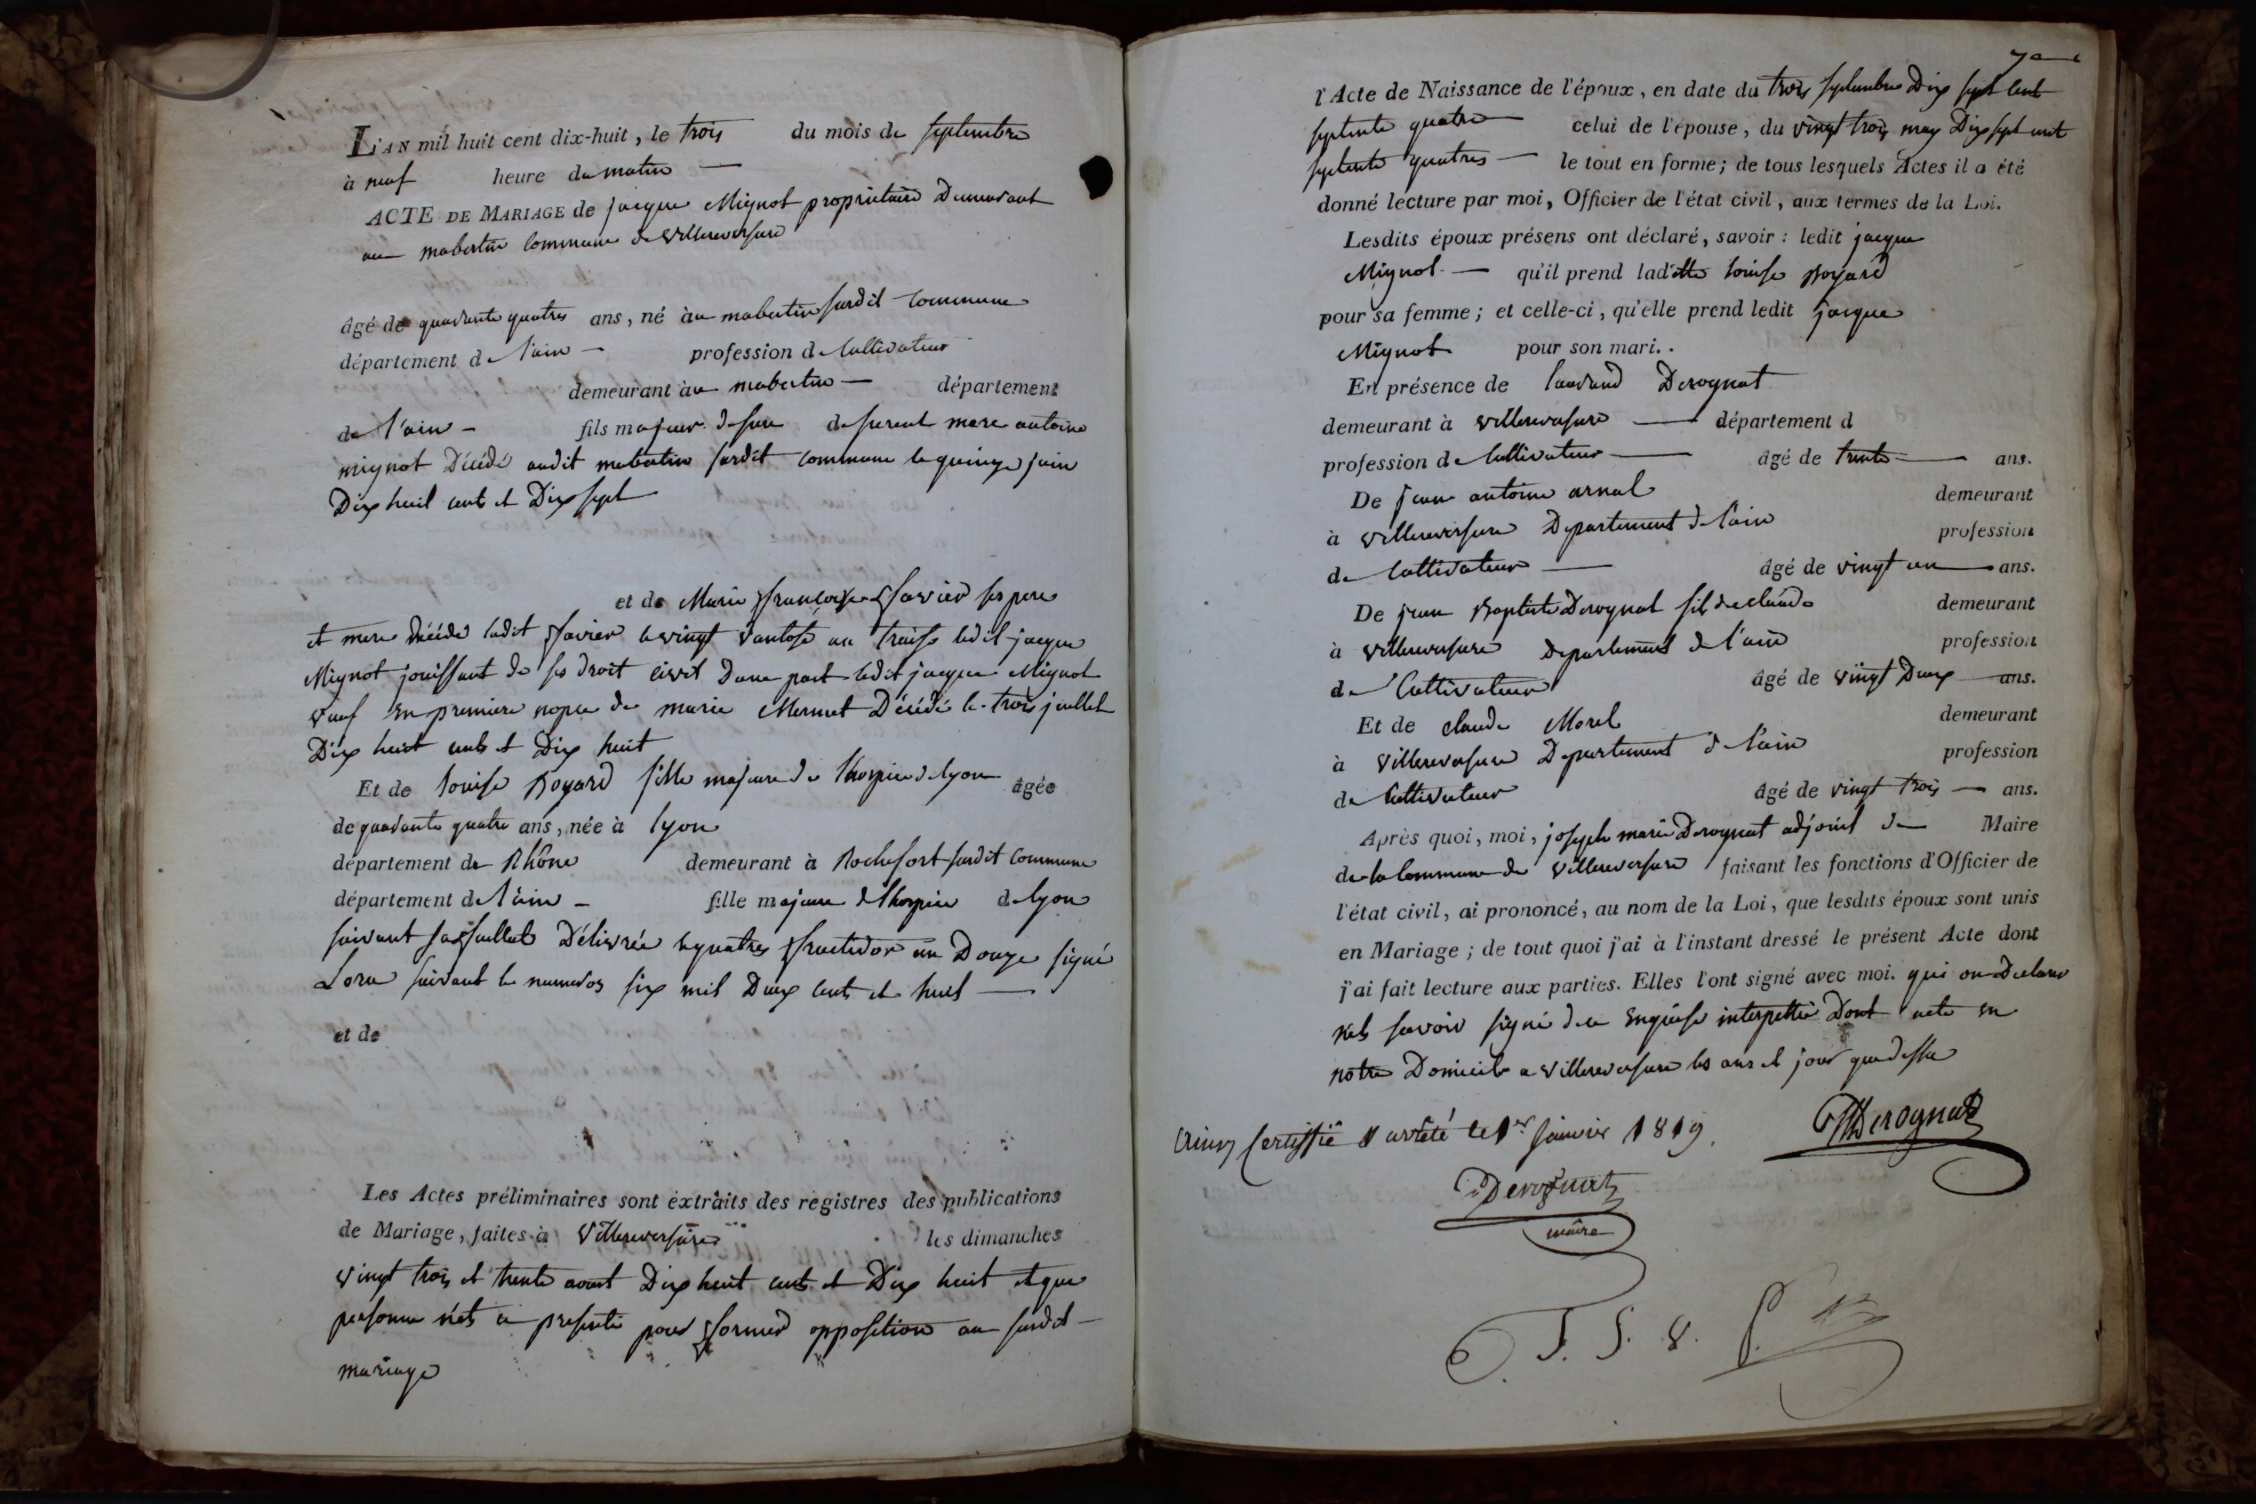 L'AN mil huit cent dix-huit, le trois du mois de septembre
à neuf heure du matin
ACTE DE MARIAGE de jacque Mignot propriétaire Demeurant
au mabertin commune de villereversure
âgé de quarante quatres ans, né à au mabertin susdit commune
département de l'ain profession de Cultivateur
demeurant à au mabertin département
de l'ain fils majeur mere antoine
mignot Décédé audit mabertin susdit commune le quinze juin
Dix huit cents et Dix sept
et de Marie françoise favier ses pere
et mere décédé ladit favier le vingt vantose an treise ledit jacque
Mignot jouissant de ses droit civil dune part ledit jacque Mignot
veuf En premiere nopce de marie Mermet Décédé le trois juillet
Dix huit cents et Dix huit
Et de louise Royard fille majeure de l'hospice de lyon âgée
de quarante quatre ans, née à lyon
département de Rhône demeurant à Rochefort susdit commune
département de l'ain fille majeure de lhospice de lyon
suivant sa Délivrée le quatres fructidor an Douze signé
suivant le numeros six mil Deux cents et huit
et de
Les Actes préliminaires sont extraits des registres des publications
de Mariage, faites à Villereversure les dimanches
vingt trois et trente aout Dix huit cents et Dix huit et que
personne n'ets ce presenté pour former opposition au susdit
mariage
l'Acte de Naissance de l'époux, en date du trois septembre Dix sept cent
septente quatre celui de l'épouse, du vingt trois may Dix sept cent
septente quatres le tout en forme; de tous lesquels Actes il a été
donné lecture par moi, Officier de l'état civil, aux termes de la Loi.
Lesdits époux présens ont déclaré, savoir : ledit jacque
Mignot qu'il prend ladite louise Royard
pour sa femme; et celle-ci, qu'elle prend ledit jacque
Mignot pour son mari.
En présence de Derognat
demeurant à villereversure département d
profession de Cultivateur âgé de trente ans.
De jean antoine arnal demeurant
à villereversure Departement de l'ain profession
de Cultivateur âgé de vingt un ans.
De jean Baptiste Derognat fils de claude demeurant
à villereversure departement de l'ain profession
de Cultivateur âgé de vingt Deux ans.
Et de claude Morel demeurant
à villereversure Departement de l'ain profession
de Cultivateur âgé de vingt trois ans.
Après quoi, moi, joseph marie Derognat adjoint de Maire
de la Commune de villereversure faisant les fonctions d'Officier de
l'état civil, ai prononcé, au nom de la Loi, que lesdits époux sont unis
en Mariage; de tout quoi j'ai à l'instant dressé le présent Acte dont
j'ai fait lecture aux parties. Elles l'ont signé avec moi. qui on Déclaré
n'ets savoir signé de ce Enquise interpellé Dont acte en
notre Domicile a villereversure les ans et jour que dessu
Certiffié & arrêté le 1er janvier 1819.
Derognat
Derognat
maire